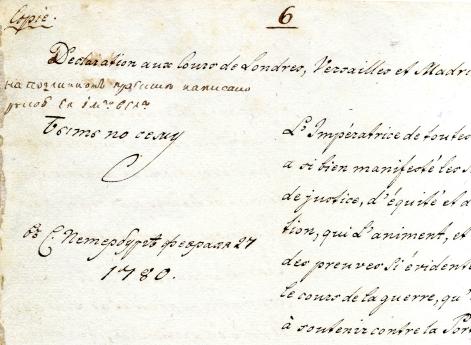 Copie.
6
Declaration aux Cours de Londres, Versailles et Madri
на подлинномъ написано
рукою Ея Імп: Вел:
Быть по сему
въ С. Петербургѣ февраля 27
1780.
L'Impératrice de toutes
a si bien manifesté les s
de justice, d'équité et d
tion, qui L'animent, et
des preuves si évident
le cours de la guerre, qu'
à soutenir contre la Port